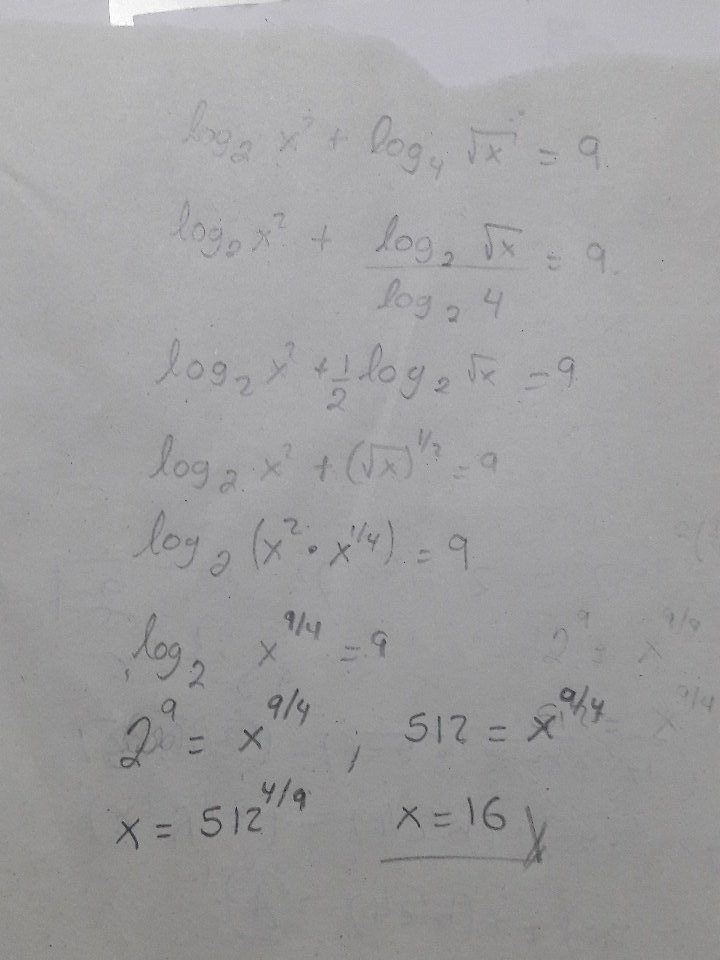 log₂ x² + log₄ √x = 9
log₂ x² + log₂ √x / log₂ 4 = 9
log₂ x² + 1/2 log₂ √x = 9
log₂ x² + (√x)^1/2 = 9
log₂ (x² • x^1/4) = 9
log₂ x^9/4 = 9
2^9 = x^9/4 ; 512 = x^9/4
x = 512^4/9 x = 16